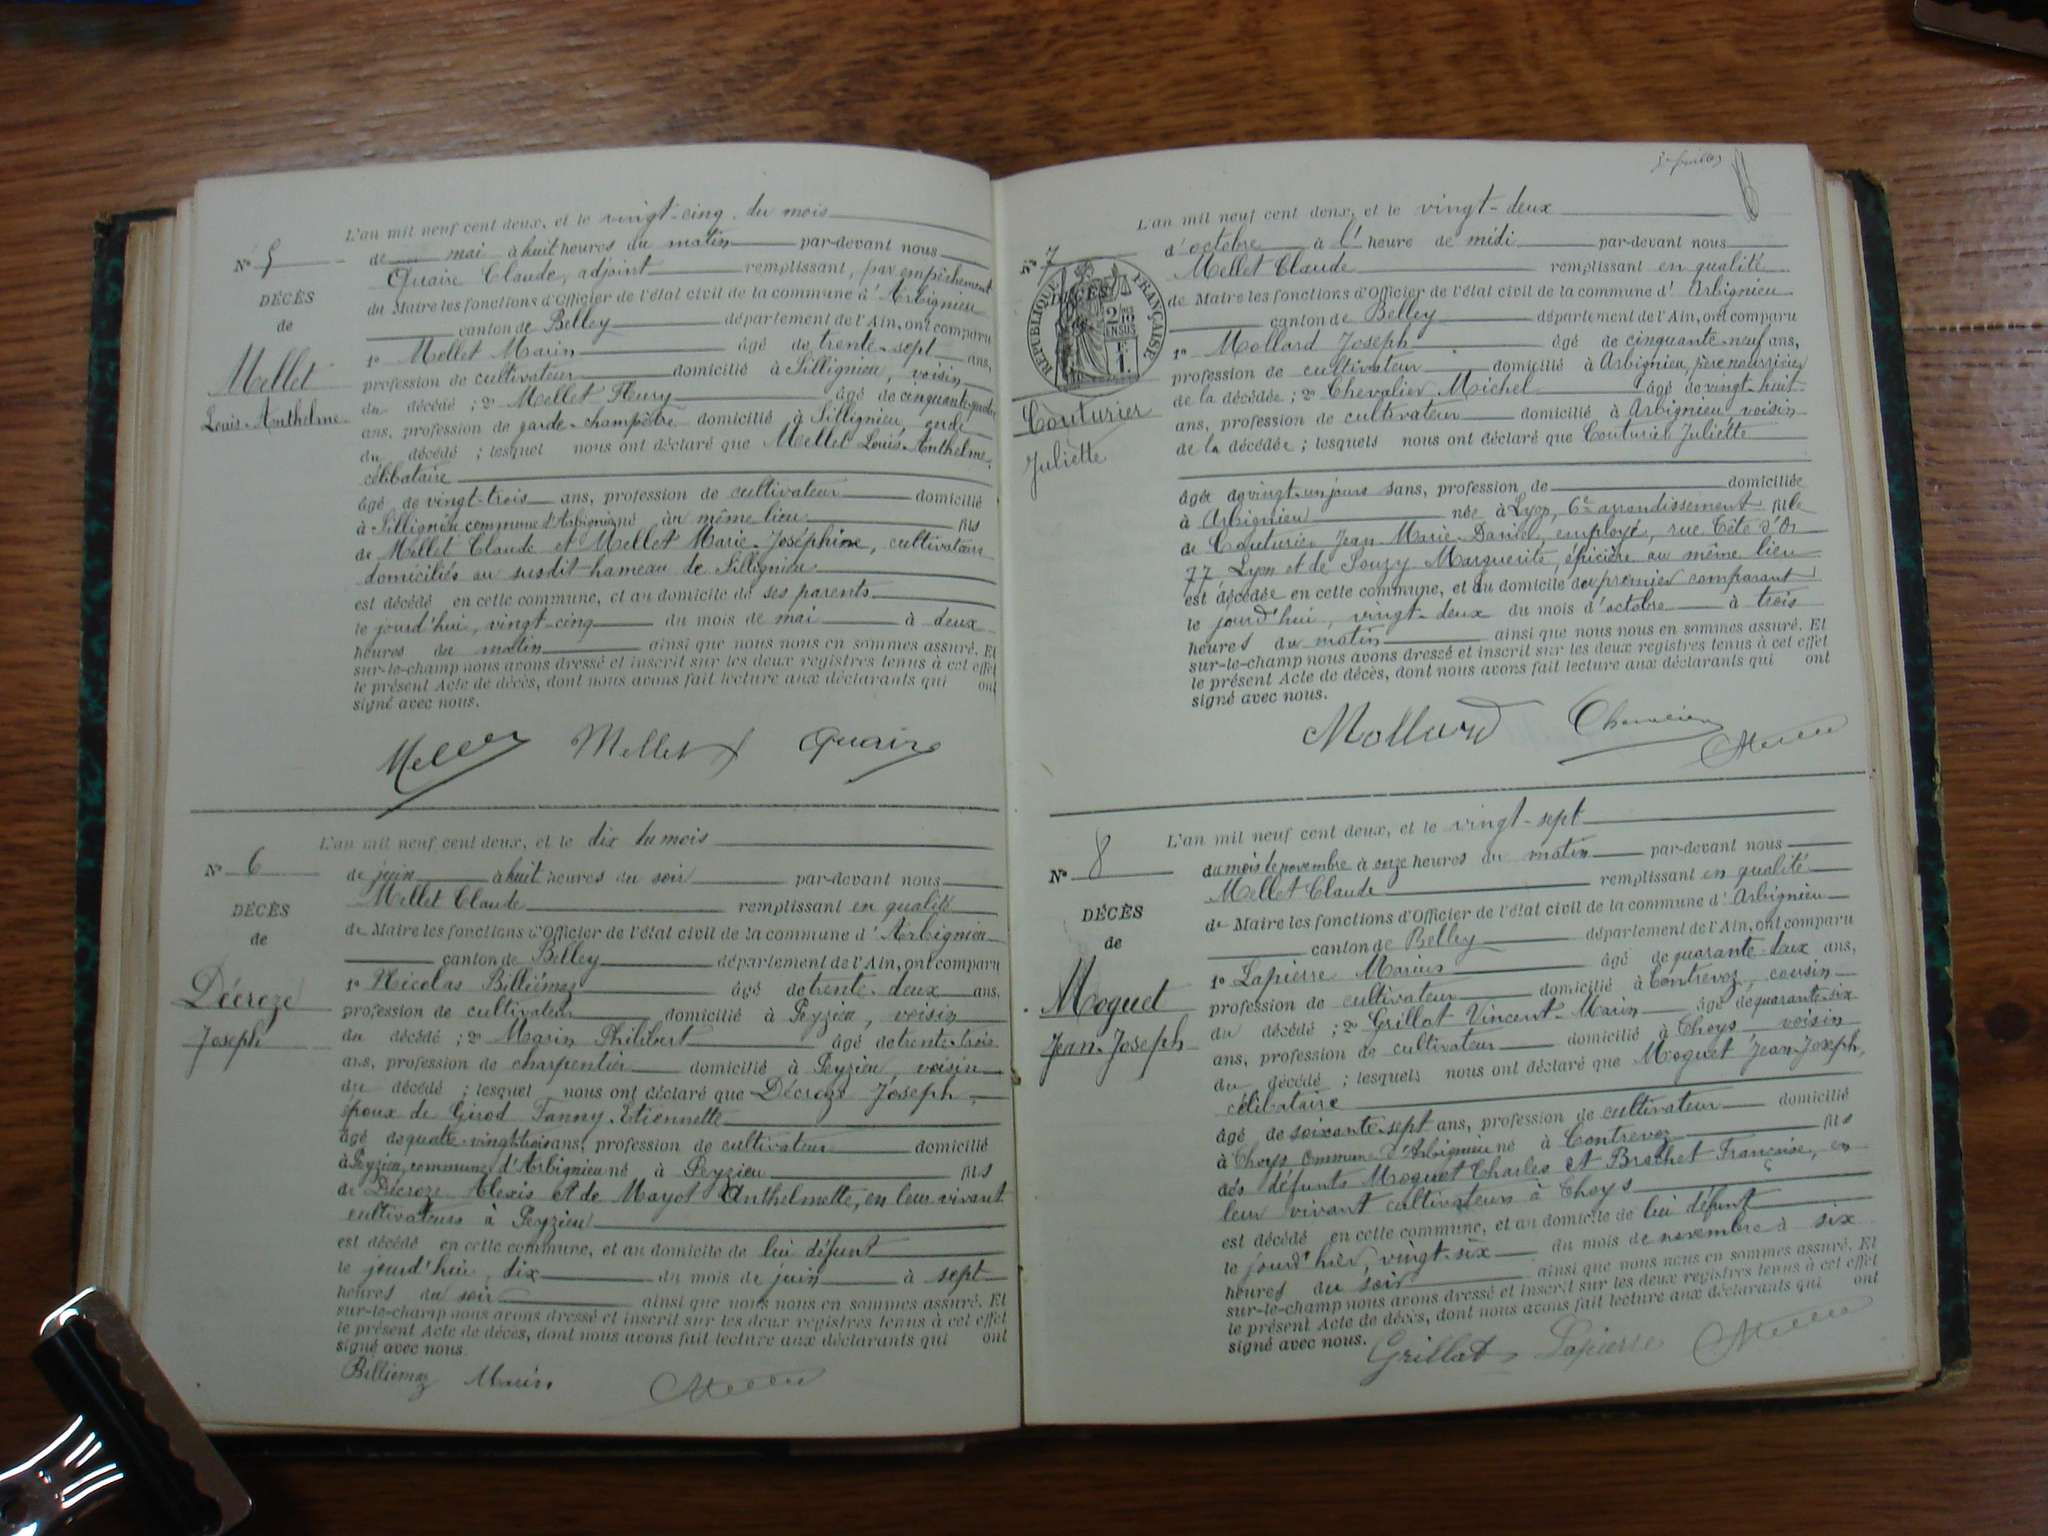 L'an mil neuf cent deux, et le vingt-cinq du mois
N° 5
de mai à huit heures du matin par-devant nous
Quaire Claude, adjoint remplissant, par empêchement
DÉCÈS
du Maire les fonctions d'Officier de l'état civil de la commune d'Arbignieu
de
canton de Belley département de l'Ain, ont comparu
1° Mellet Marin âgé de trente-sept ans,
Mellet
profession de cultivateur domicilié à Sillignieu, voisin
Louis-Anthelme
du décédé ; 2° Mellet Fleury âgé de cinquante-quatre
ans, profession de garde-champêtre domicilié à Sillignieu, oncle
du décédé ; lesquels nous ont déclaré que Mellet Louis-Anthelme,
célibataire
âgé de vingt-trois ans, profession de cultivateur domicilié
à Sillignieu commune d'Arbignieu né au même lieu fils
de Mellet Claude et Mellet Marie-Joséphine, cultivateurs
domiciliés au susdit hameau de Sillignieu
est décédé en cette commune, et au domicile de ses parents
le jourd'hui, vingt-cinq du mois de mai à deux
heures du matin ainsi que nous nous en sommes assuré. Et
sur-le-champ nous avons dressé et inscrit sur les deux registres tenus à cet effet
le présent Acte de décès, dont nous avons fait lecture aux déclarants qui ont
signé avec nous.
Mellet Mellet Quaire
L'an mil neuf cent deux, et le dix du mois
N° 6
de juin à huit heures du soir par-devant nous
Mellet Claude remplissant en qualité
DÉCÈS
de Maire les fonctions d'Officier de l'état civil de la commune d'Arbignieu
de
canton de Belley département de l'Ain, ont comparu
1° Nicolas Billiémaz âgé de trente-deux ans,
Décroze
profession de cultivateur domicilié à Peyzieu, voisin
Joseph
du décédé ; 2° Marin Philibert âgé de trente-trois
ans, profession de charpentier domicilié à Peyzieu, voisin
du décédé ; lesquels nous ont déclaré que Décroze Joseph,
époux de Girod Fanny-Etiennette
âgé de quatre-vingt-trois ans, profession de cultivateur domicilié
à Peyzieu, commune d'Arbignieu né à Peyzieu fils
de Décroze Alexis et de Mayot Anthelmette, en leur vivant
cultivateurs à Peyzieu
est décédé en cette commune, et au domicile de lui défunt
le jourd'hui, dix du mois de juin à sept
heures du soir ainsi que nous nous en sommes assuré. Et
sur-le-champ nous avons dressé et inscrit sur les deux registres tenus à cet effet
le présent Acte de décès, dont nous avons fait lecture aux déclarants qui ont
signé avec nous.
Billiemaz Marin Mellet
L'an mil neuf cent deux, et le vingt-deux
N° 7
d'octobre à l' heure de midi par-devant nous
Mellet Claude remplissant en qualité
DÉCÈS
RÉPUBLIQUE FRANÇAISE
2/10 EN SUS
F. 1.
de Maire les fonctions d'Officier de l'état civil de la commune d'Arbignieu
canton de Belley département de l'Ain, ont comparu
1° Mollard Joseph âgé de cinquante-neuf ans,
profession de cultivateur domicilié à Arbignieu, père nourricier
Couturier
de la décédée ; 2° Chevalier Michel âgé de vingt-huit
ans, profession de cultivateur domicilié à Arbignieu voisin
Juliette
de la décédée ; lesquels nous ont déclaré que Couturier Juliette
âgée de vingt-un jours sans, profession de domiciliée
à Arbignieu née à Lyon, 6e arrondissement fille
de Couturier Jean-Marie-Daniel, employé, rue Tête d'Or
77 Lyon et de Souzy Marguerite, épicière au même lieu
est décédée en cette commune, et au domicile du premier comparant
le jourd'hui, vingt-deux du mois d'octobre à trois
heures du matin ainsi que nous nous en sommes assuré. Et
sur-le-champ nous avons dressé et inscrit sur les deux registres tenus à cet effet
le présent Acte de décès, dont nous avons fait lecture aux déclarants qui ont
signé avec nous.
Mollard Chevalier Mellet
L'an mil neuf cent deux, et le vingt-sept
N° 8
du mois de novembre à onze heures du matin par-devant nous
Mellet Claude remplissant en qualité
DÉCÈS
de Maire les fonctions d'Officier de l'état civil de la commune d'Arbignieu
de
canton de Belley département de l'Ain, ont comparu
1° Lapierre Marius âgé de quarante-deux ans,
Moguet
profession de cultivateur domicilié à Contrevoz, cousin
Jean-Joseph
du décédé ; 2° Grillat Vincent-Marin âgé de quarante-six
ans, profession de cultivateur domicilié à Thoys, voisin
du décédé ; lesquels nous ont déclaré que Moguet Jean-Joseph,
célibataire
âgé de soixante-sept ans, profession de cultivateur domicilié
à Thoys commune d'Arbignieu né à Contrevoz fils
des défunts Moguet Charles et Brochet Françoise, en
leur vivant cultivateurs à Thoys
est décédé en cette commune, et au domicile de lui défunt
le jourd'hier, vingt-six du mois de novembre à six
heures du soir ainsi que nous nous en sommes assuré. Et
sur-le-champ nous avons dressé et inscrit sur les deux registres tenus à cet effet
le présent Acte de décès, dont nous avons fait lecture aux déclarants qui ont
signé avec nous.
Grillat Lapierre Mellet